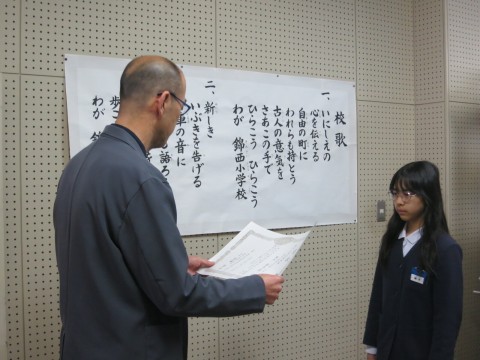 校歌
一、
いにしえの
心を伝える
自由の町に
われらも持とう
古人の意気を
さあこの手で
ひらこう ひらこう
わが 錦西小学校
二、
新しき
いぶきを告げる
車の音に
歩
わが 錦